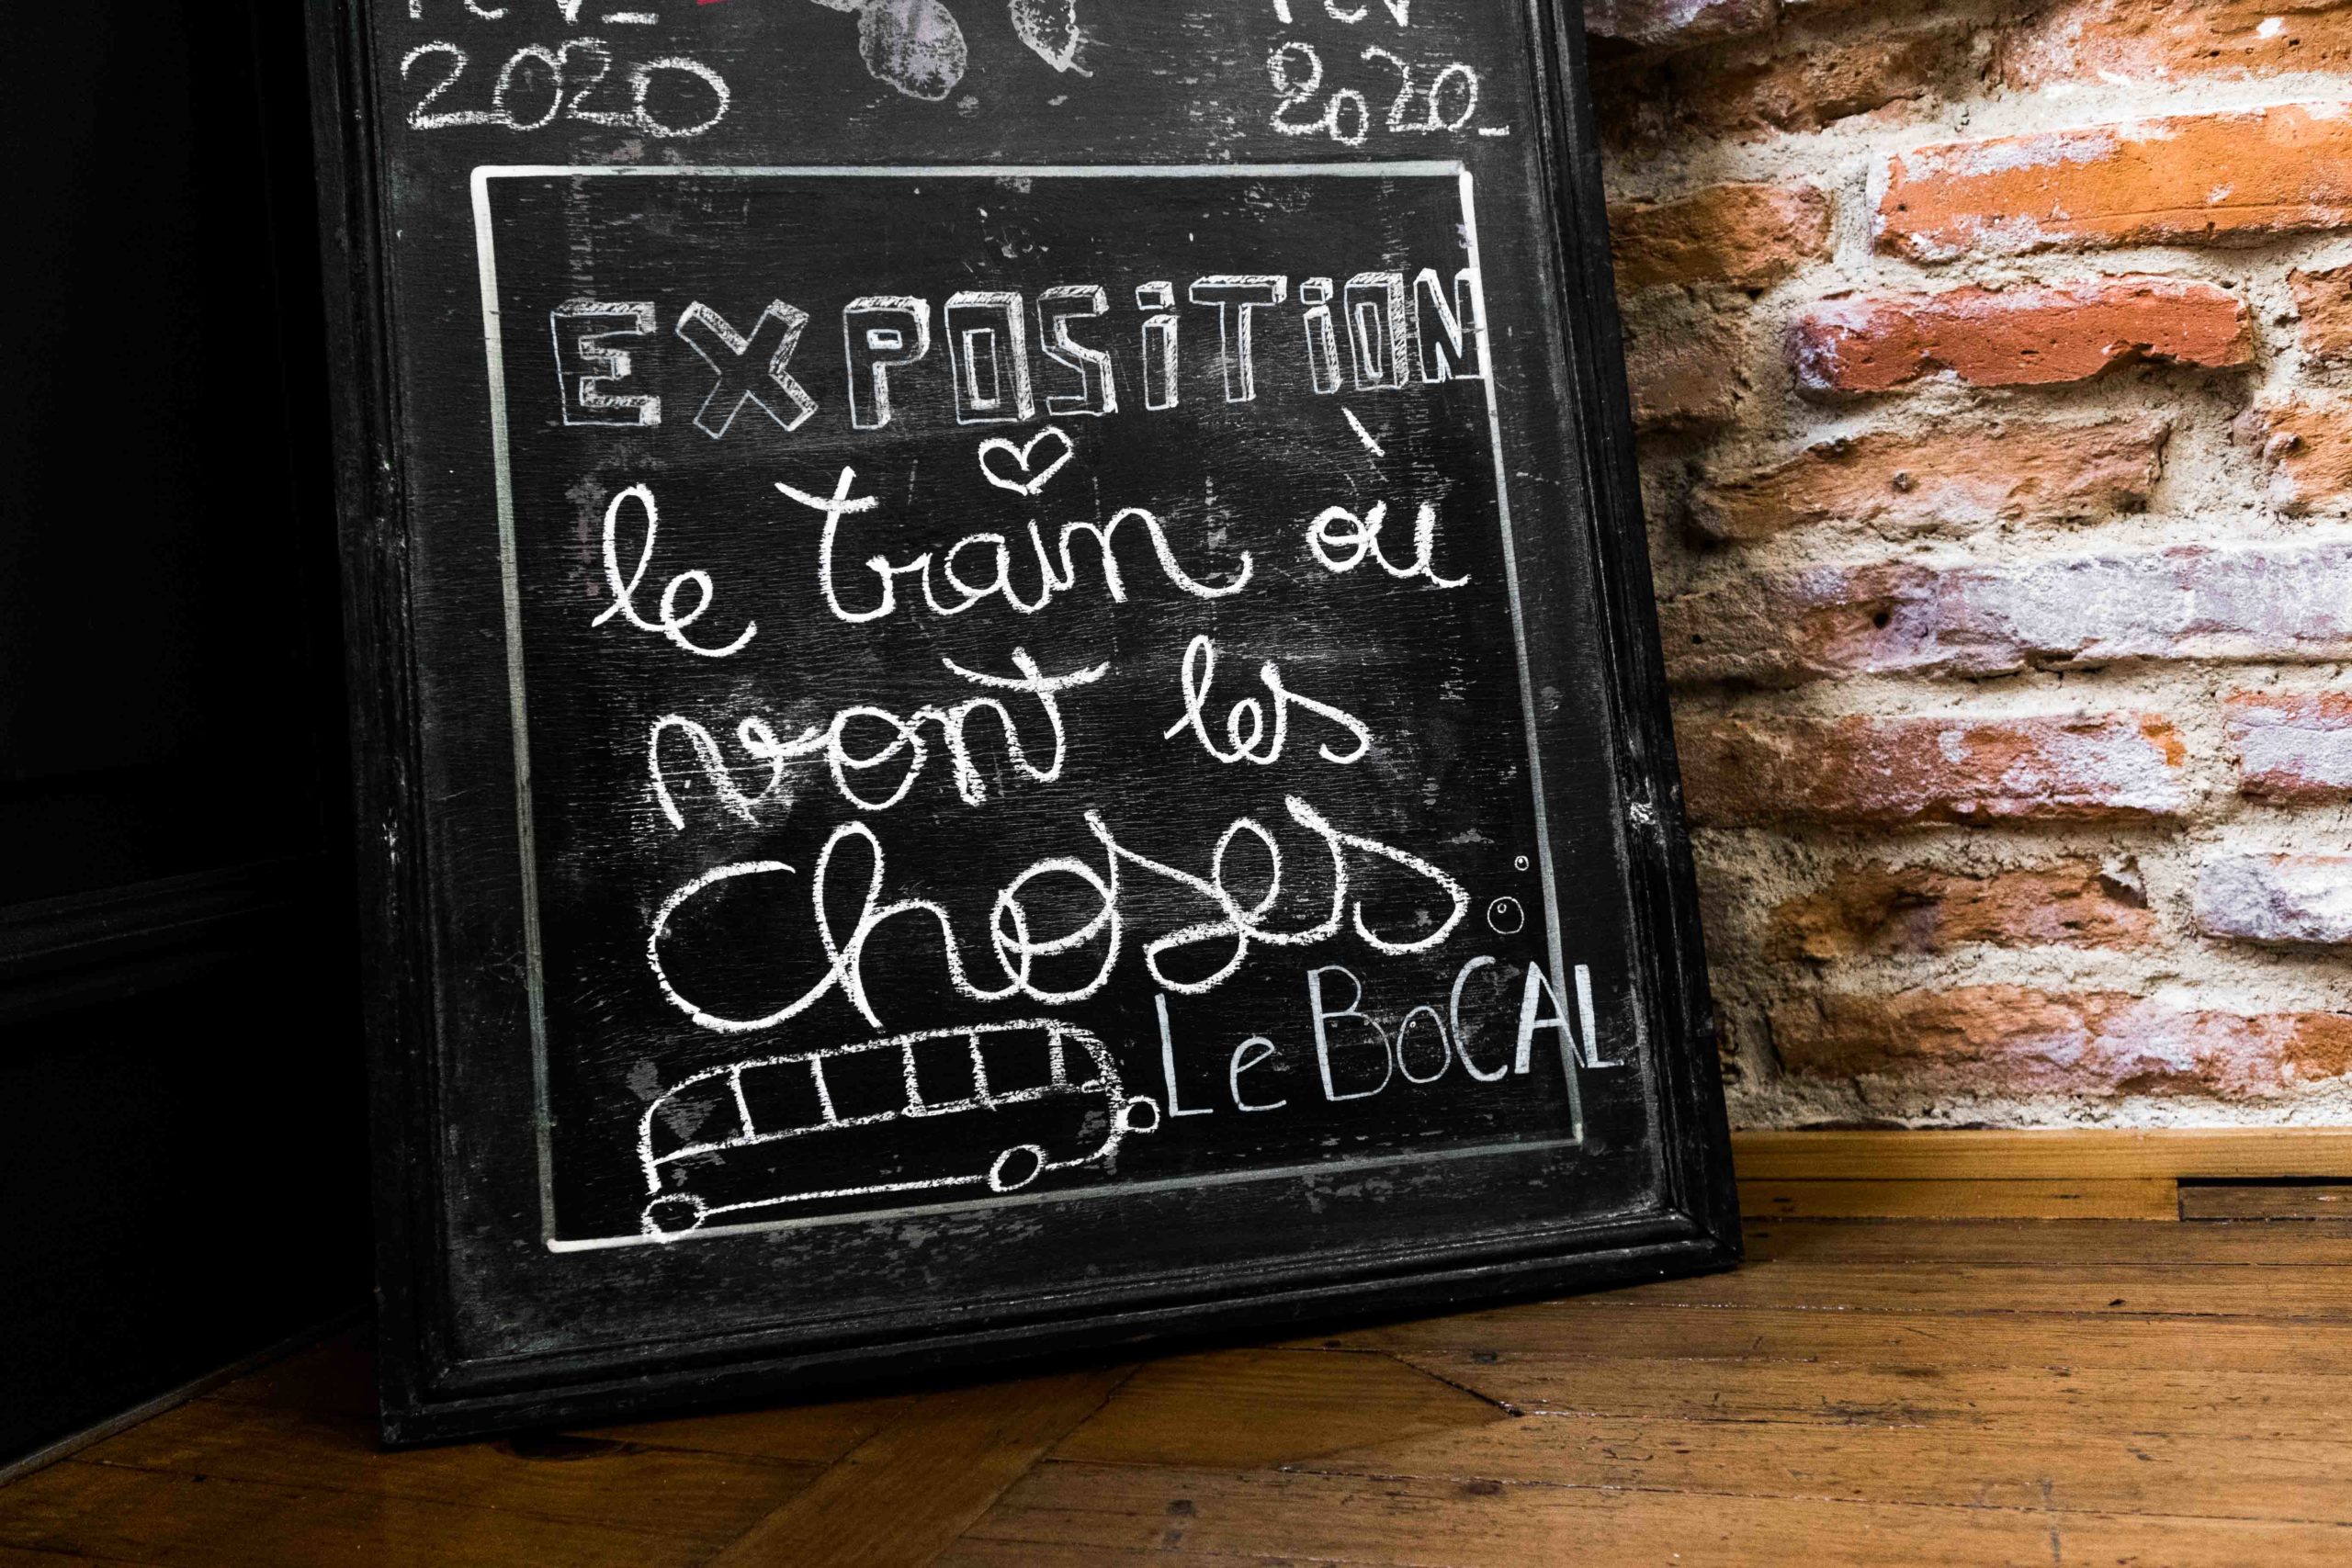 2020 2020_
EXPOSiTiON
le train où
vont les
choses
Le BoCAL